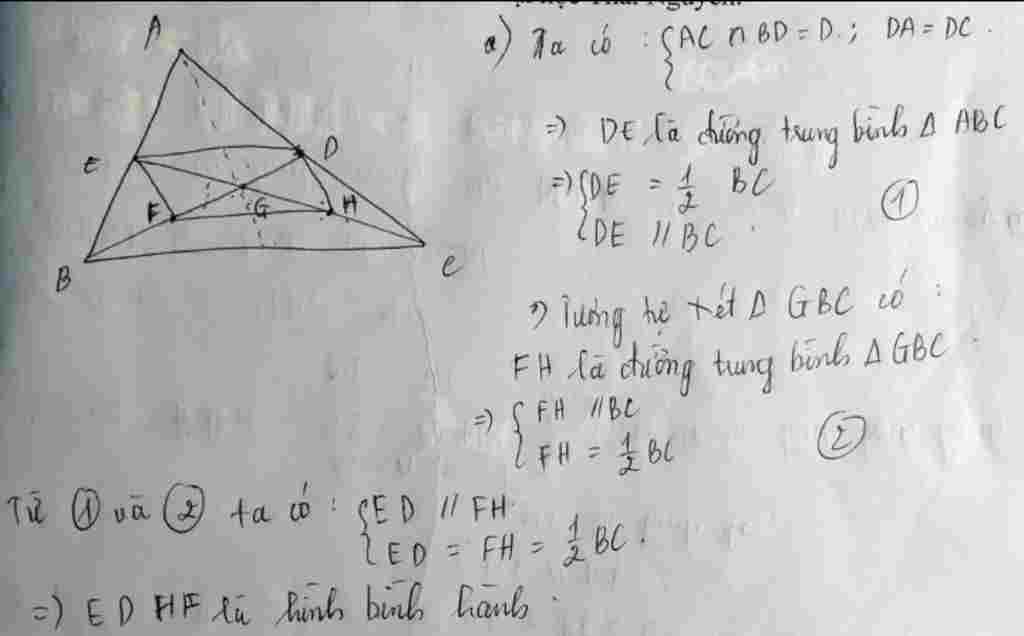 A
E
D
F
G
H
B
C
a) Ta có : { AC ∩ BD = D ; DA = DC .
=> DE là đường trung bình Δ ABC
=> { DE = 1/2 BC
DE // BC .
①
Tương tự xét Δ GBC có :
FH là đường trung bình Δ GBC .
=> { FH // BC
FH = 1/2 BC
②
Từ ① và ② ta có : { ED // FH
ED = FH = 1/2 BC .
=> EDHF là hình bình hành .